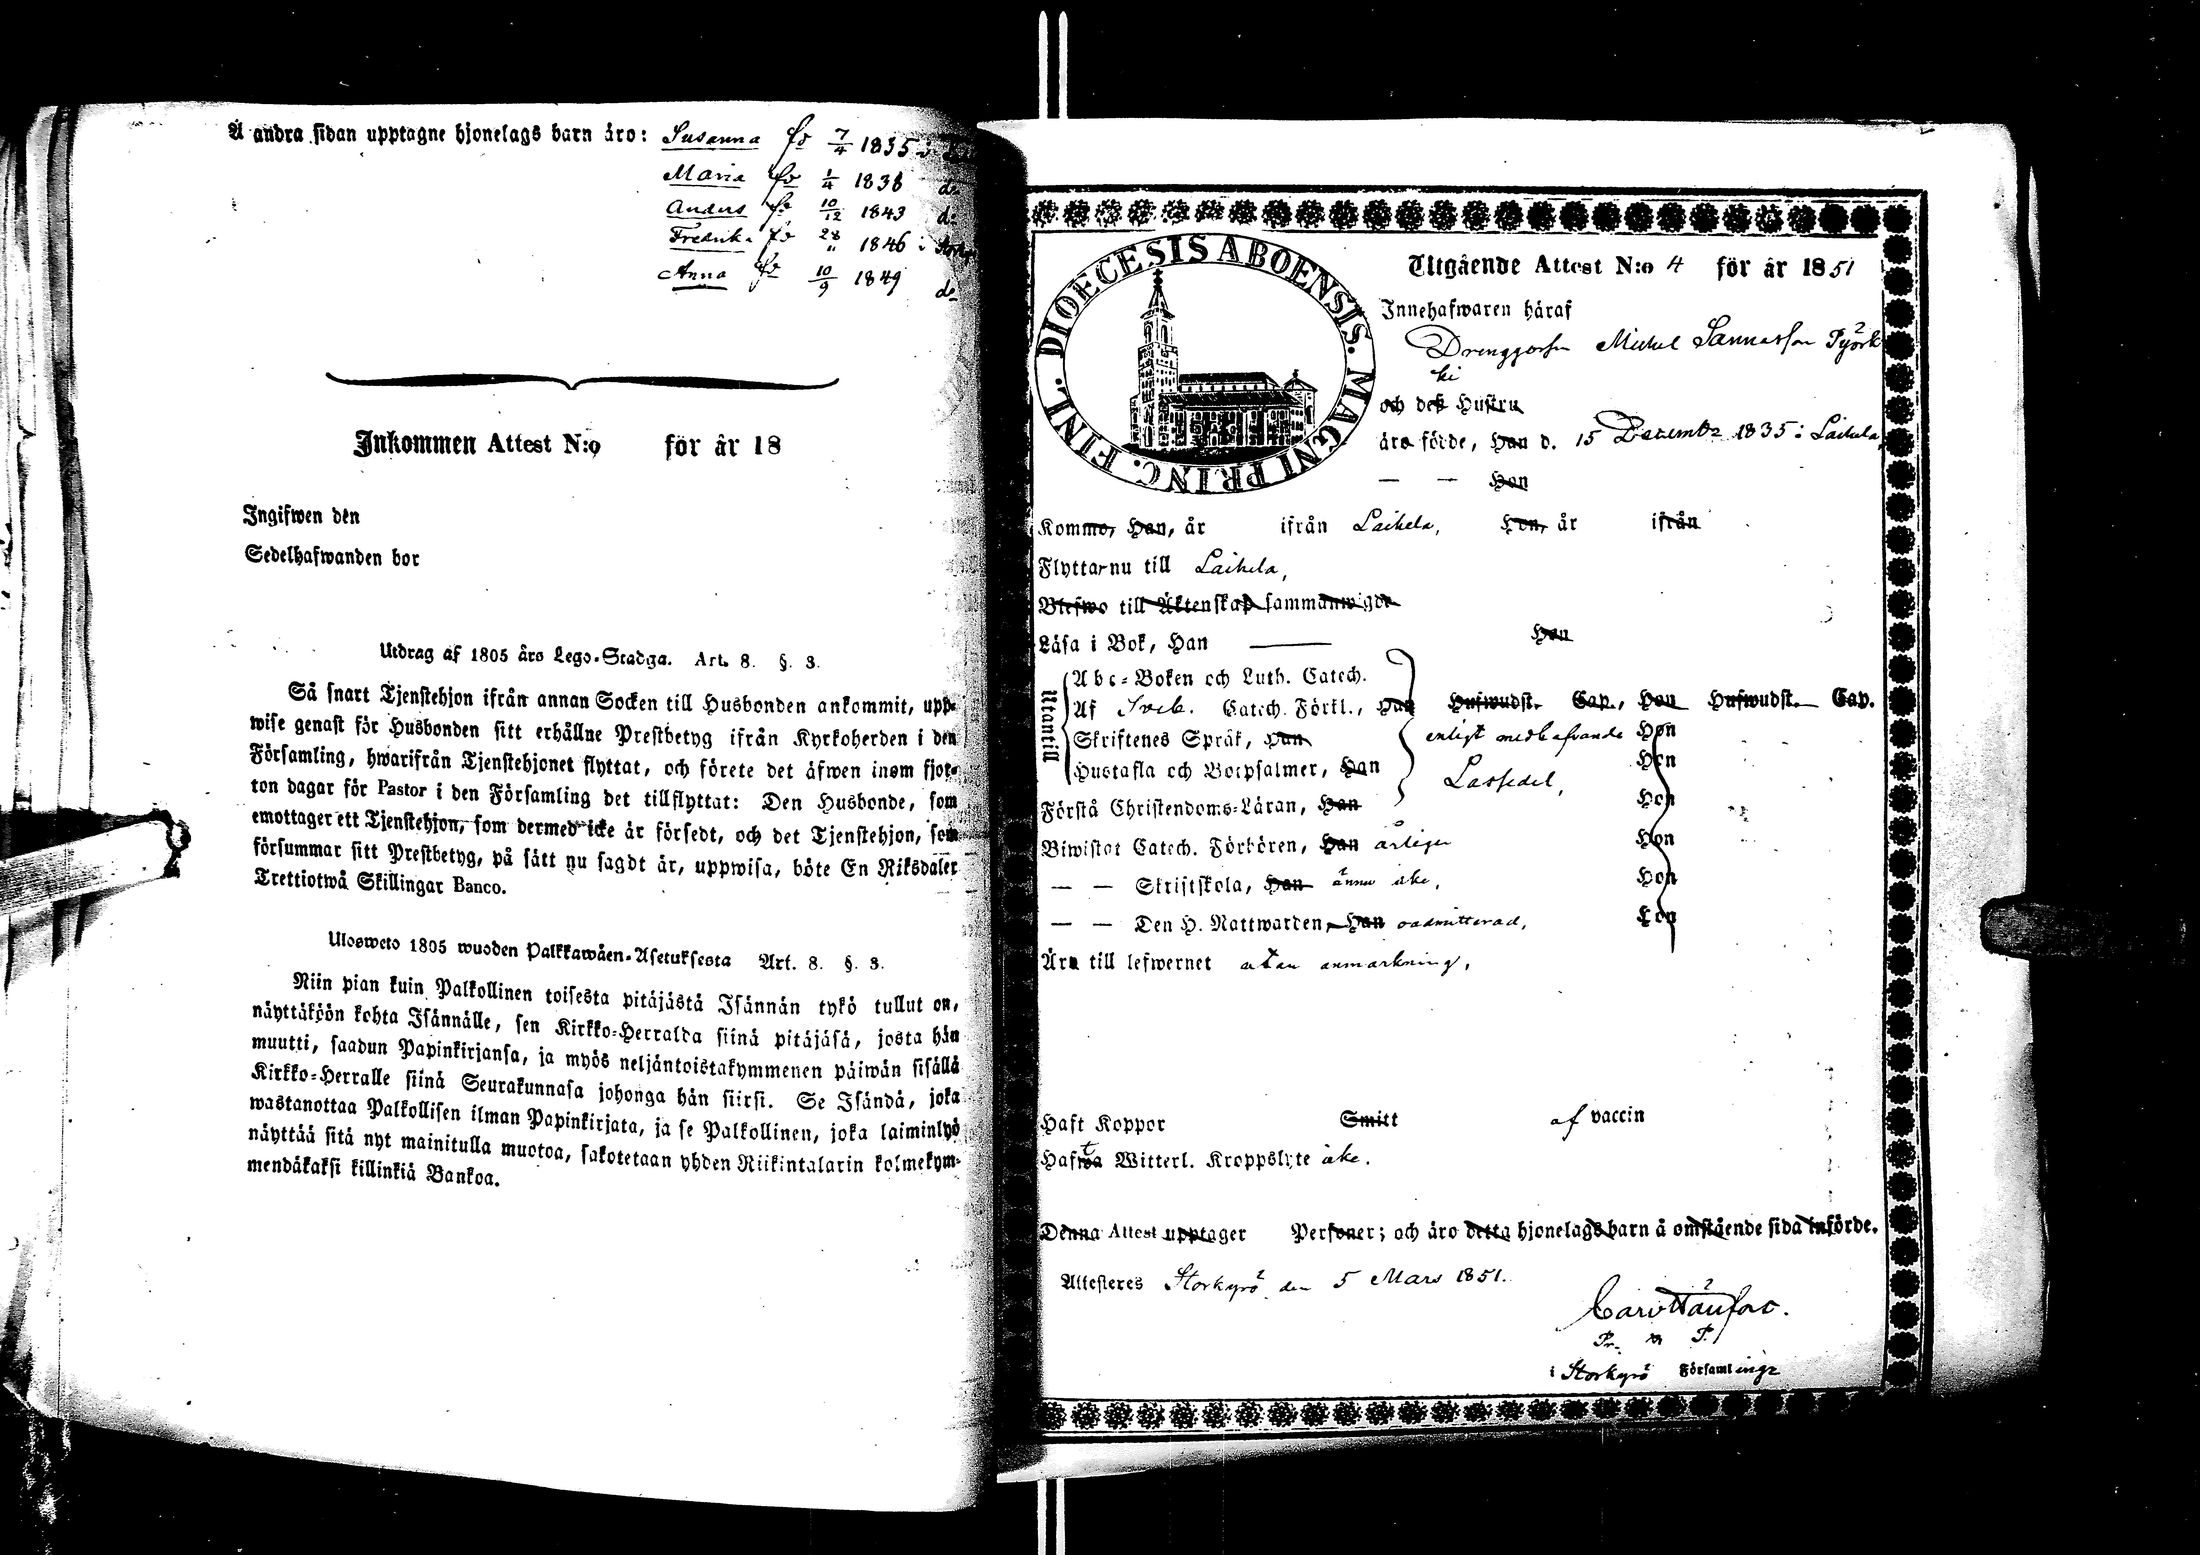 Å andra sidan upptagne hjonelags barn äro: Susanna fö 7/4 1835 i
Maria fö 1/4 1838 do
Anders fö 10/12 1843 do
Fredrika fö 28/" 1846 i Storkyrö
Anna fö 10/9 1849 do
Inkommen Attest N:o för år 18
Ingifwen den
Sedelhafwanden bor
Utdrag af 1805 års Lego-Stadga. Art. 8. §. 3.
Så snart Tjenstehjon ifrån annan Socken till Husbonden ankommit, upp-
wise genast för Husbonden sitt erhållne Prestbetyg ifrån Kyrkoherden i den
Församling, hwarifrån Tjenstehjonet flyttat, och förete det äfwen inom fjor-
ton dagar för Pastor i den Församling det tillflyttat: Den Husbonde, som
emottager ett Tjenstehjon, som dermed icke är försedt, och det Tjenstehjon, som
försummar sitt Prestbetyg, på sätt nu sagdt är, uppwisa, böte En Riksdaler
Trettiotwå Skillingar Banco.
Ulosweto 1805 wuoden Palkkawäen-Asetuksesta Art. 8. §. 3.
Niin pian kuin Palkollinen toisesta pitäjästä Isännän tykö tullut on,
näyttäköön kohta Isännälle, sen Kirkko-Herralda siinä pitäjäsä, josta hän
muutti, saadun Papinkirjansa, ja myös neljäntoistakymmenen päiwän sisällä
Kirkko-Herralle siinä Seurakunnasa johonga hän siirsi. Se Isändä, joka
wastanottaa Palkollisen ilman Papinkirjata, ja se Palkollinen, joka laiminlyö
näyttää sitä nyt mainitulla muotoa, sakotetaan yhden Riikintalarin kolmekym-
mendäkaksi killinkiä Bankoa.
DIOECESIS ABOENSIS. MAGNI PRINC. FINL.
Utgående Attest N:o 4 för år 1851
Innehafwaren häraf
Drenggossen Michel Sannasson Pyörk
ki
och dess Hustru
äro födde, Han d. 15 December 1835 i Laihela,
— — Hon
Kommo, Han, år ifrån Laihela, Hon, år ifrån
Flyttar nu till Laihela,
Blefwo till Äktenskap sammanwigde
Läsa i Bok, Han — Hon
Utantill
Abc-Boken och Luth. Catech.
Af Sveb. Catech. Förkl., Han Hufwudst. Cap., Hon Hufwudst. Cap.
Skriftenes Språk, Han enligt medhafvande Hon
Hustafla och Botpsalmer, Han Lässedel, Hon
Förstå Christendoms-Läran, Han Hon
Biwistat Catech. Förhören, Han årligen Hon
— — Skriftskola, Han ännu icke, Hon
— — Den H. Nattwarden, Han oadmitterad, Hon
Äro till lefwernet utan anmärkning,
Haft Koppor Smitt af vaccin
Hafwa Witterl. Kroppslyte icke.
Denna Attest upptager Personer; och äro detta hjonelags barn å omstående sida införde.
Attesteres Storkyrö den 5 Mars 1851.
i Storkyrö Församlings